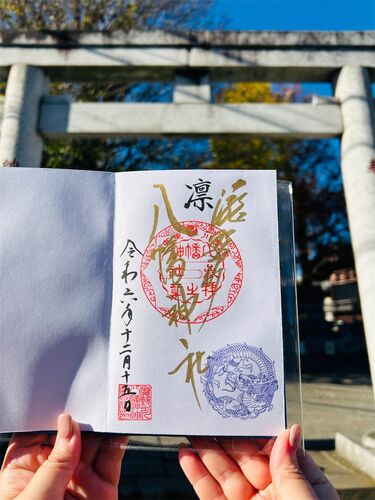 滝野川
凛
八幡神社
令和六年十二月十五日